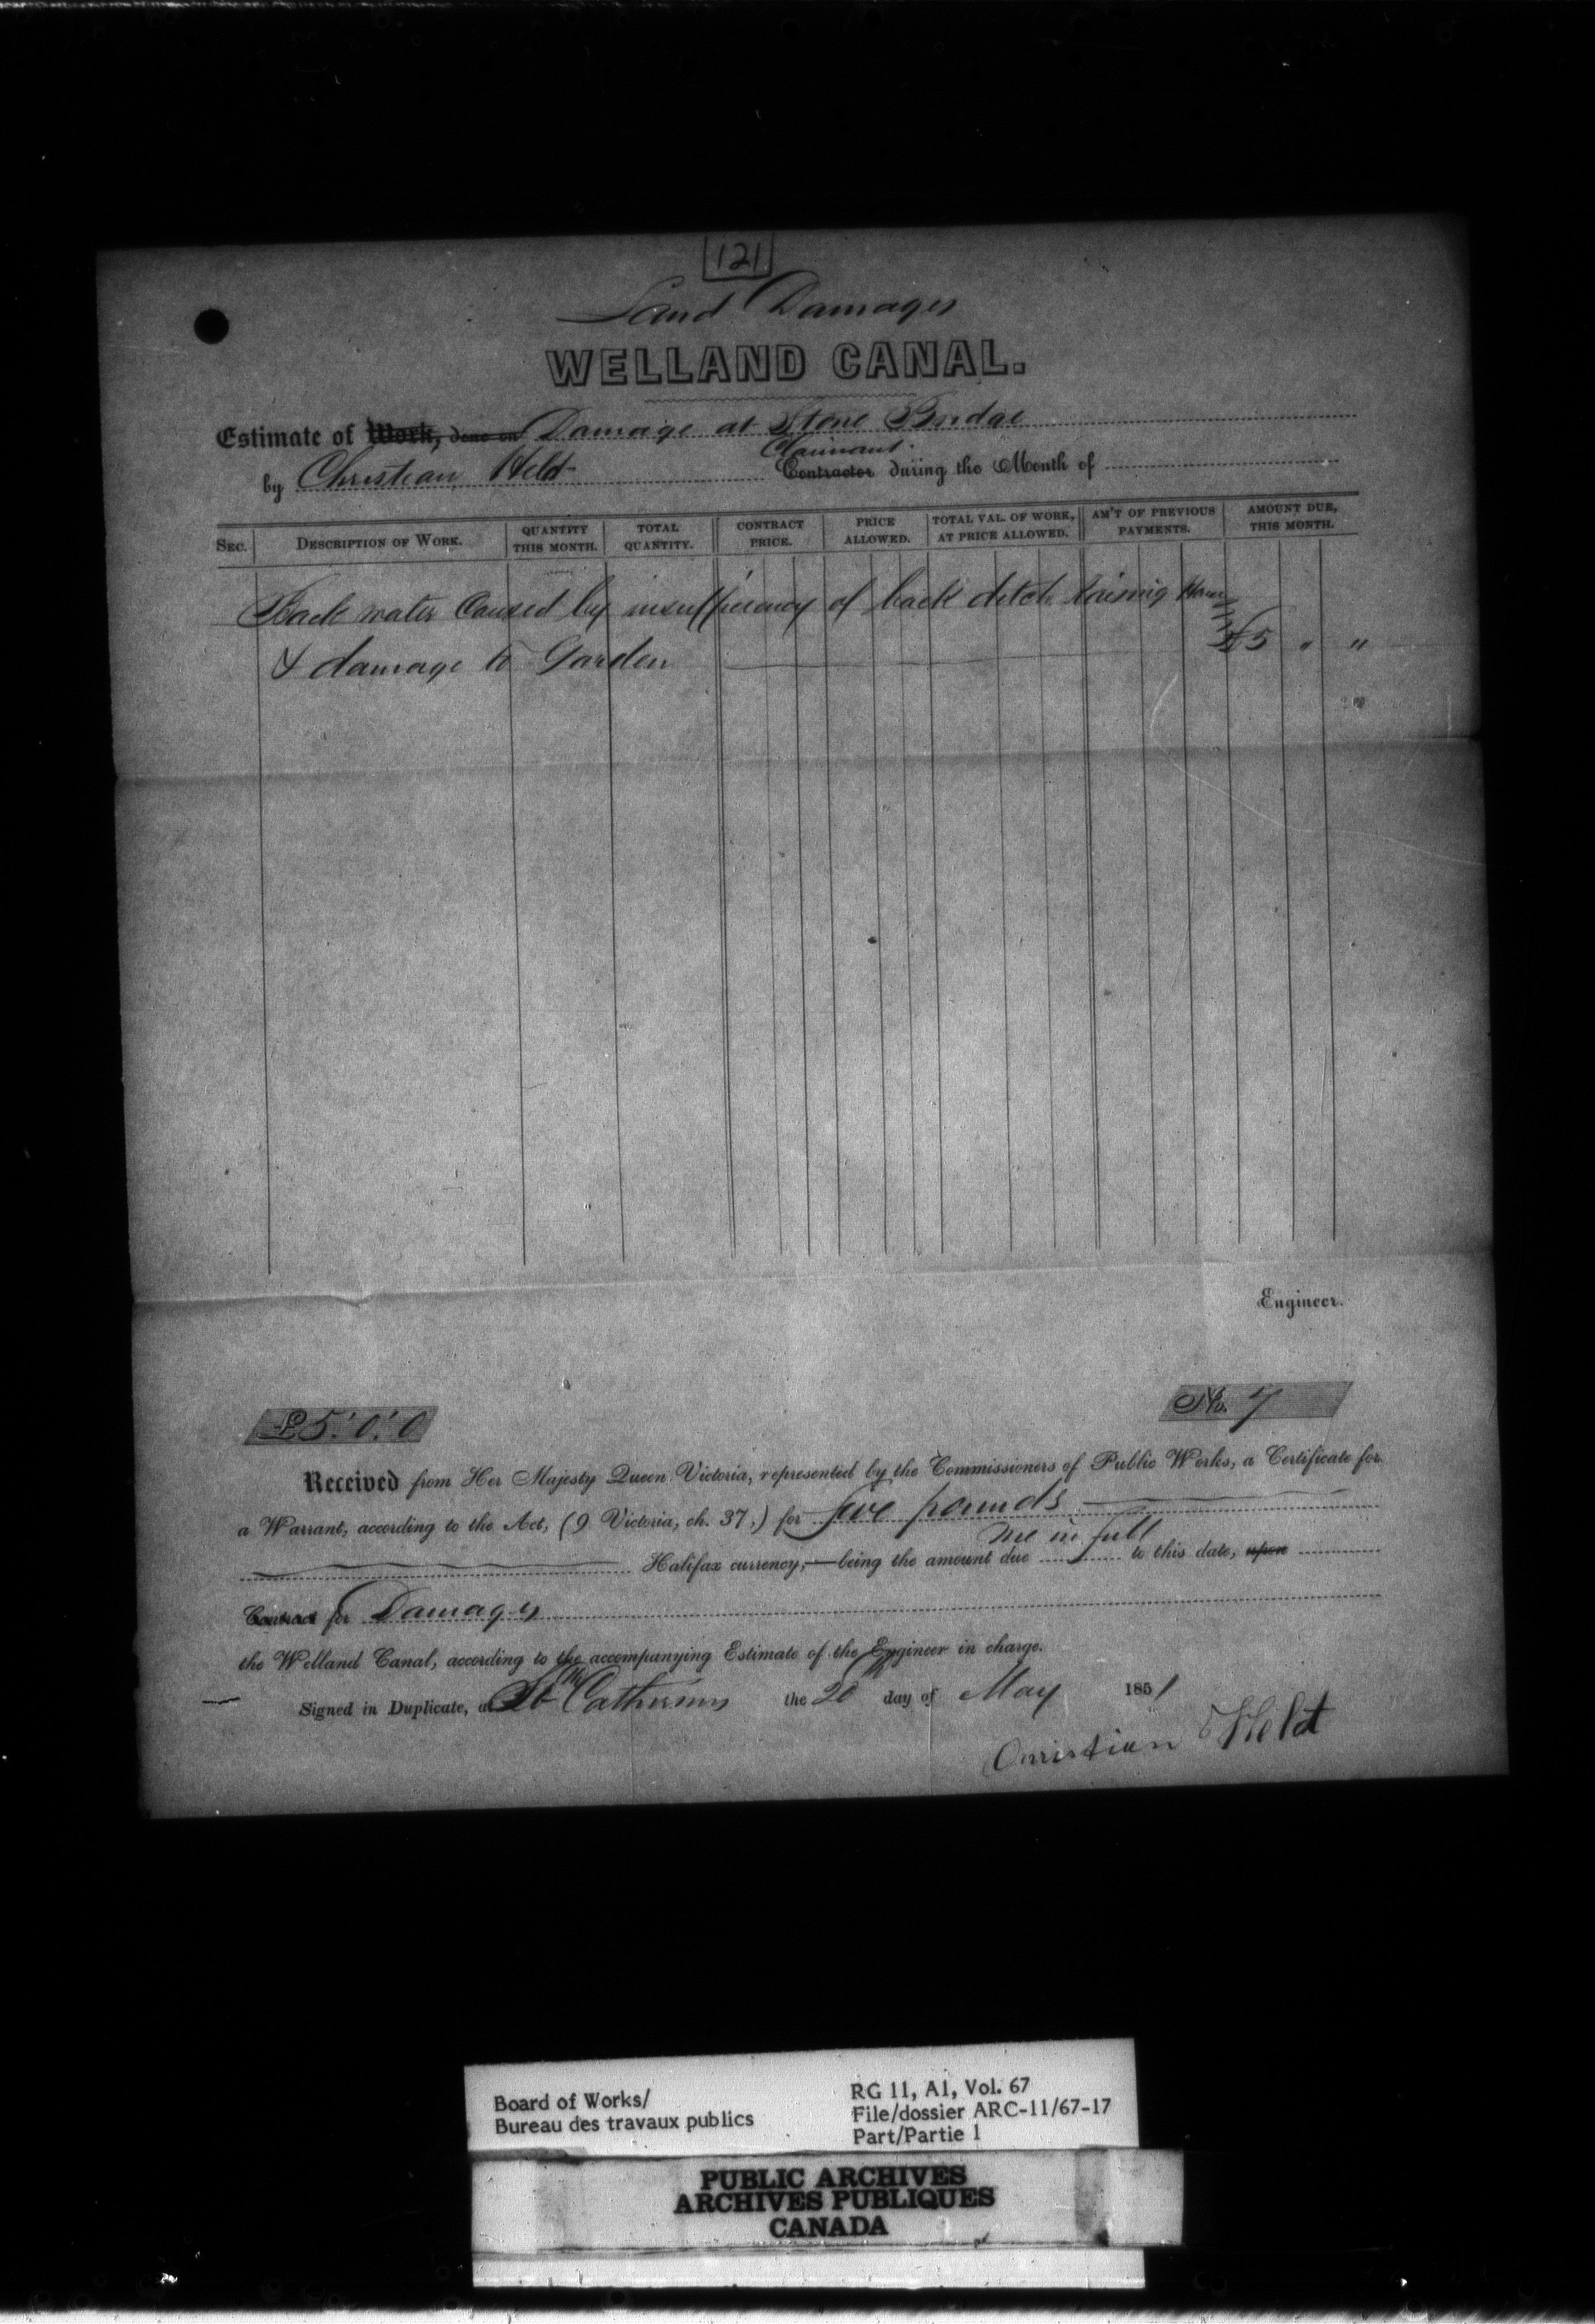 121
Land Damages
WELLAND CANAL.
Estimate of Work, done on Damage at Stone Bridge
Claimant
by Christian Held Contractor during the Month of
SEC. DESCRIPTION OF WORK. QUANTITY THIS MONTH. TOTAL QUANTITY. CONTRACT PRICE. PRICE ALLOWED. TOTAL VAL. OF WORK, AT PRICE ALLOWED. AM'T OF PREVIOUS PAYMENTS. AMOUNT DUE, THIS MONTH.
Back water Caused by insufficiency of back ditch
& damage to Garden £5 " "
Engineer.
£5.0.0 No. 7
Received from Her Majesty Queen Victoria, represented by the Commissioners of Public Works, a Certificate for
a Warrant, according to the Act, (9 Victoria, ch. 37,) for five pounds
me in full
Halifax currency,—being the amount due to this date, upon
Contract for Damages
the Welland Canal, according to the accompanying Estimate of the Engineer in charge.
Signed in Duplicate, at St Catherines the 20th day of May 1851
Christian Held
Board of Works/
Bureau des travaux publics
RG 11, A1, Vol. 67
File/dossier ARC-11/67-17
Part/Partie 1
PUBLIC ARCHIVES
ARCHIVES PUBLIQUES
CANADA